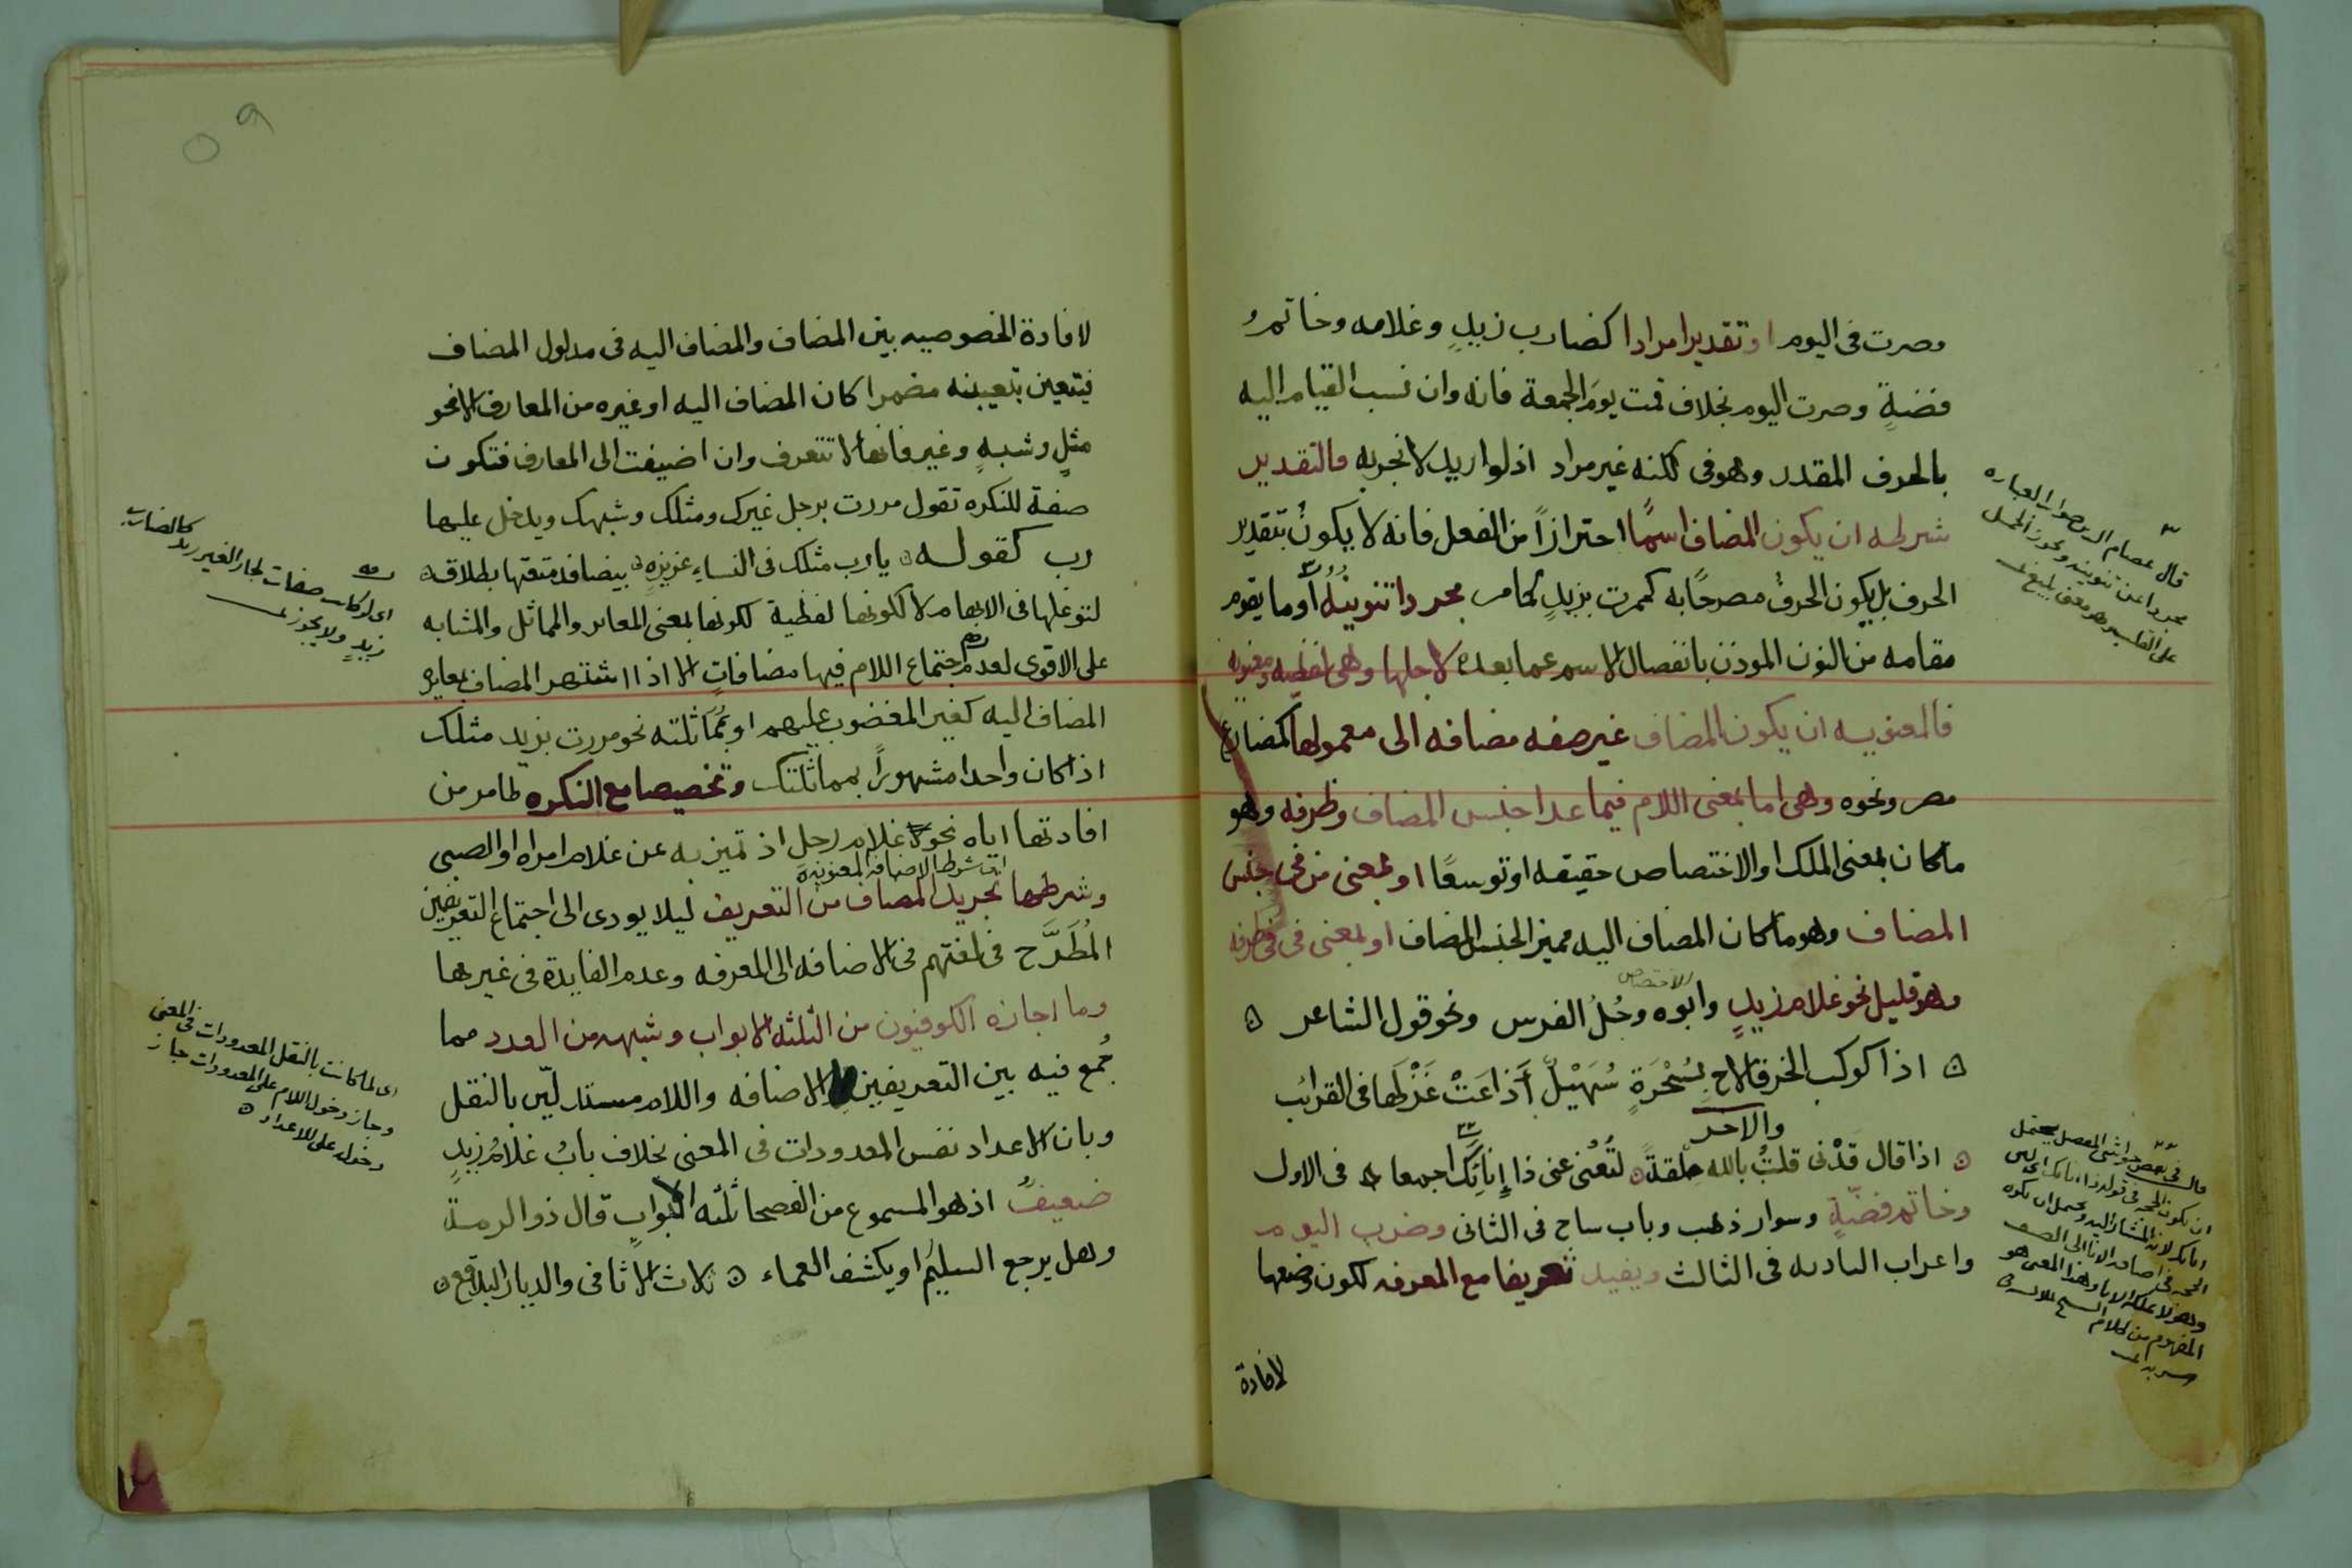 وصرت فى اليوم او تقديرا مرادا كضارب زيدٍ وغلامه وخاتم
فضةٍ وصرت اليوم بخلاف قمت يومَ الجمعة فانه وان نسب القيام اليه
بالحرف المقدر وهو فى لكنه غير مراد اذ لو اريد لانجر به فالتقدير
شرطه ان يكون المضاف اسمًا احترازاً من الفعل فانه لا يكون بتقدير
الحرف بل يكون الحرفُ مصرحًا به كمررت بزيدٍ كما مر مجردا تنوينُهُ او ما يقوم
مقامه من النون الموذن بانفصال الاسم عما بعده لاجلها وهى لفظيه ومعنويه
فالمعنويه ان يكون المضاف غير صفه مضافه الى معمولها كمضارع
مصر ونحوه وهى اما بمعنى اللام فيما عدا جنس المضاف وظرفه وهو
ما كان بمعنى الملك او الاختصاص حقيقه او توسعًا او بمعنى من فى جنس
المضاف وهو ما كان المضاف اليه مميز الجنس المضاف او بمعنى فى فى ظرفه
الاختصاص
وهو قليل نحو غلام زيدٍ وابوه وجُلُ الفرس ونحو قول الشاعر
اذا كوكب الخرقا لاح بسُحْرَةٍ سُهَيْلٌ أذاعَتْ غَزْلَها فى القرائب
والاخر
اذا قال قَدْنى قلتُ بالله حلفةً لتُغْنى عنى ذا إنائك اجمعا فى الاول
وخاتم فضّةٍ وسوار ذهب وباب ساج فى الثانى وضرب اليوم
واعراب الباديه فى الثالث ويفيد تعريفا مع المعرفه لكون وضعها
لافادة
قال عصام الدين صواب العباره
مجردا عن تنوينه ويجوز الحمل
على القلب وهو معنى بليغ
قال فى بعض حواشى المفصل يحتمل
ان يكون الحجه فى قوله ذا انائك
لان المشار اليه ويحتمل ان يكون
الحجه فى اضافه الانا الى الضيف
وهو لا يملكه
المفهوم من كلام
لافادة الخصوصيه بين المضاف والمضاف اليه فى مدلول المضاف
فيتعين بتعيينه مضمرا كان المضاف اليه او غيره من المعارف الا نحو
مثلٍ وشبهٍ وغير فانها لا تتعرف وان اضيفت الى المعارف فتكون
صفة للنكره تقول مررت برجل غيرك ومثلك وشبهك ويدخل عليها
رب كقوله يا رب مثلك فى النساءِ غريرةٍ بيضا قد متعتها بطلاقه
لتوغلها فى الابهام لا لكونها لفظية لكونها بمعنى المغاير والمماثل والمشابه
على الاقوى لعدم اجتماع اللام فيها مضافاتٍ الا اذا اشتهر المضاف بمغايره
المضاف اليه كغير المغضوب عليهم او بمُمَاثلته نحو مررت بزيد مثلك
اذا كان واحدا مشهوراً بمماثلتك وتخصيصا مع النكره لما مر من
افادتها اياه نحو غلام رجل اذ تميز به عن غلام امراه او الصبى
اى شرط الاضافه المعنويه
وشرطها تجريد المضاف من التعريف ليلا يودى الى اجتماع التعريفين
المُطَّرَح فى لغتهم فى الاضافه الى المعرفه وعدم الفايدة فى غيرها
وما اجازه الكوفيون من الثلثه الابواب وشبهه من العدد مما
جُمع فيه بين التعريفين الاضافه واللام مستدلّين بالنقل
وبان الاعداد نفس المعدودات فى المعنى بخلاف بابُ غلامُ زيدٍ
ضعيفٌ اذ هو المسموع من الفصحا ثلثه الابواب قال ذو الرمة
وهل يرجع السليمُ او يكشف العماء ثلاث الاثافى والديار البلاقع
اى لو كانت صفات لجاز الغير زيد كالضارب
زيدٍ ولا يجوز
اى لما كانت بالنقل المعدودات فى المعنى
وجاز دخول اللام على المعدودات جاز
دخوله على الاعداد
٥٩